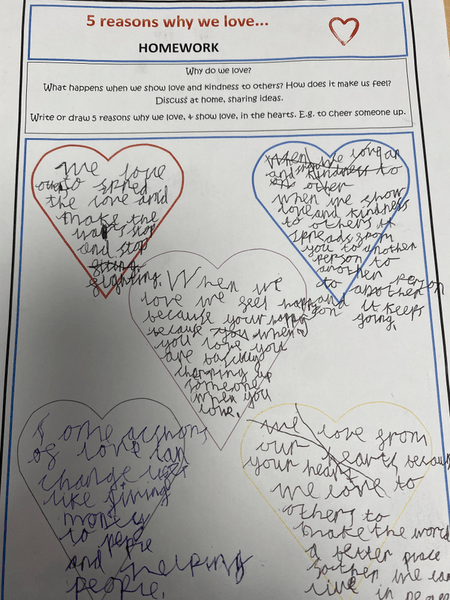 5 reasons why we love...
HOMEWORK
Why do we love?
What happens when we show love and kindness to others? How does it make us feel?
Discuss at home, sharing ideas.
Write or draw 5 reasons why we love, & show love, in the hearts. E.g. to cheer someone up.
We love
to spred
the love and
make the
wars stop
and stop
fighting.
and kindness to
other
when we show
love and kindness
to others it
spreads from
you to another
person to
another
to another person
and it keeps
going.
When we
love we feel happy
because your happy
because when
you love you
are basicly
charing up
someone
when you
love.
Some acshons
of love can
change
like giving
money
to
and helping
people.
We love from
our hearts because
your heart
we love to
others to
make the world
a better place
so then we can
live in peace